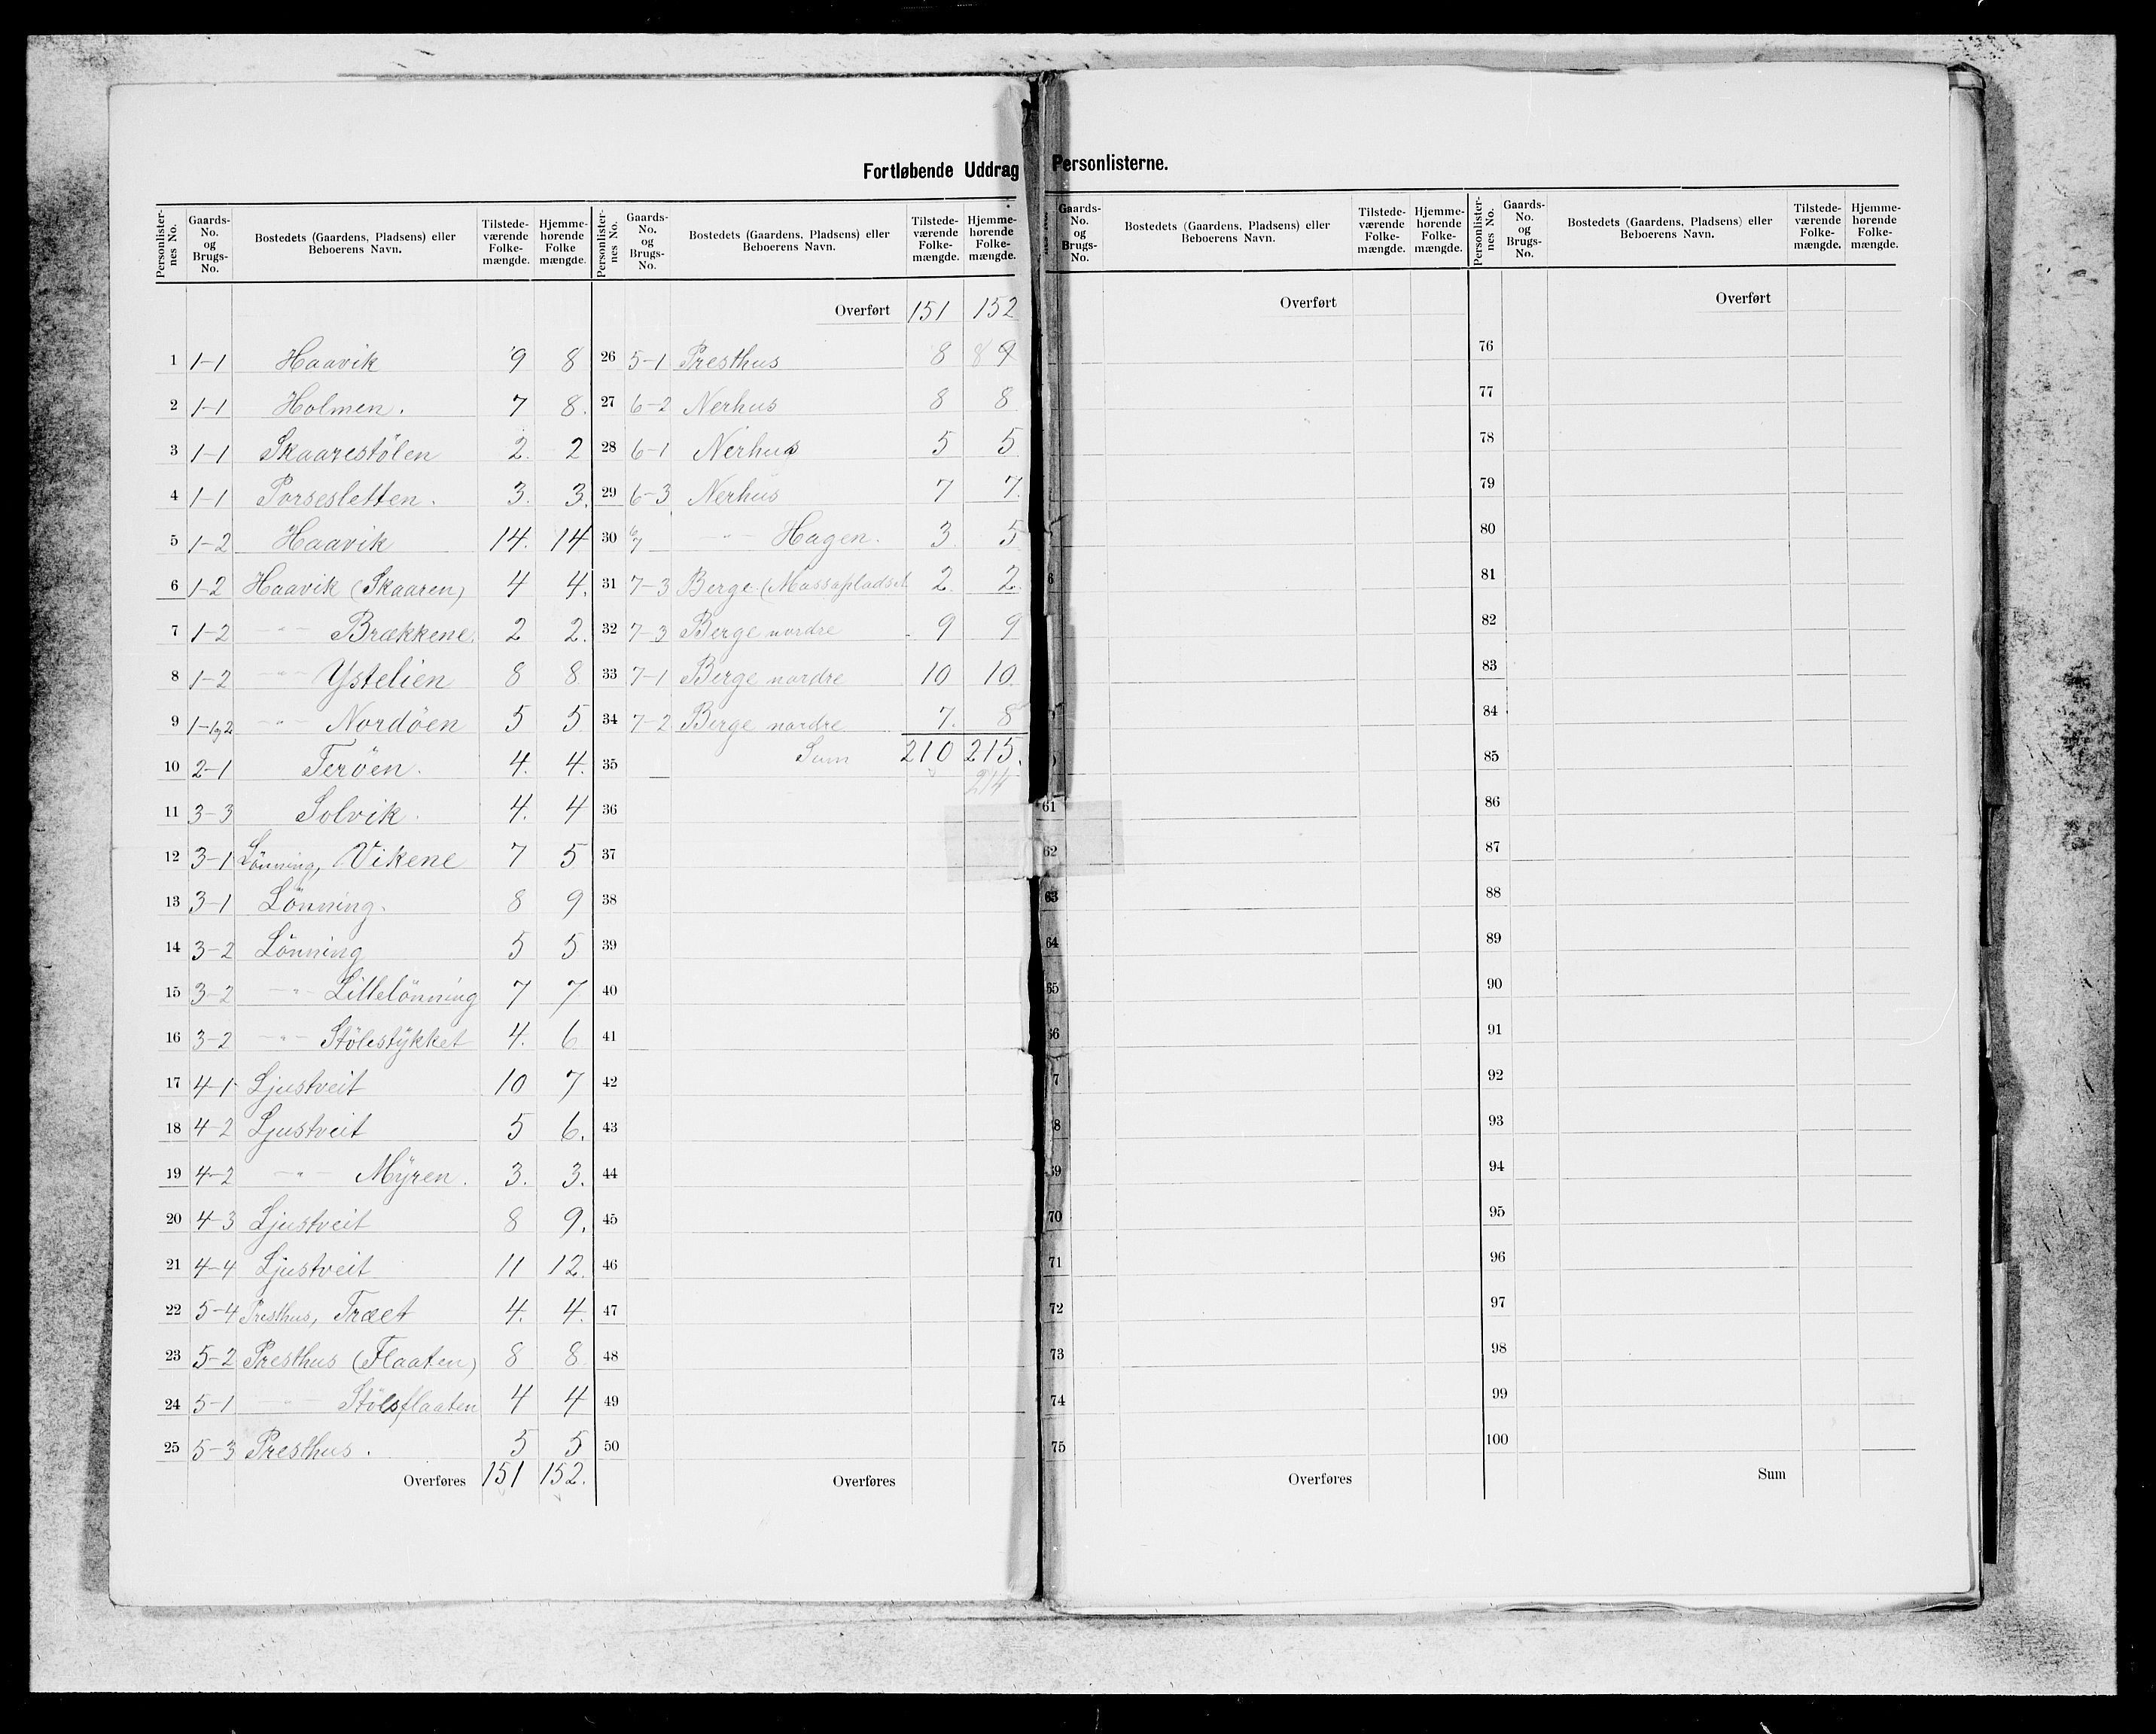 Fortløbende Uddrag Personlisterne.
Personlister-nes No. Gaards-No. og Brugs-No. Bostedets (Gaardens, Pladsens) eller Beboerens Navn. Tilstede-værende Folke-mængde. Hjemme-hørende Folke mængde.
1 1-1 Haavik 9 8
2 1-1 Holmen. 7 8.
3 1-1 Skaarestölen 2. 2
4 1-1 Porsesletten. 3. 3.
5 1-2 Haavik 14. 14
6 1-2 Haavik (Skaaren) 4 4.
7 1-2 -"- Brækkene. 2 2.
8 1-2 -"- Ystelien 8 8
9 1-1og2 -"- Nordöen 5 5
10 2-1 Teröen. 4. 4.
11 3-3 Solvik. 4. 4
12 3-1 Lönning, Vikene 7 5
13 3-1 Lönning. 8 9
14 3-2 Lönning 5 5
15 3-2 -"- Littelönning 7 7
16 3-2 -"- Stölestÿkket 4. 6
17 4-1 Ljustveit 10 7
18 4-2 Ljustveit 5 6.
19 4-2 -"- Mÿren. 3. 3.
20 4-3 Ljustveit 8 9.
21 4-4 Ljustveit 11 12.
22 5-4 Presthus, Træet 4. 4.
23 5-2 Presthus (Flaaten) 8 8
24 5-1 -"- Stölsflaaten 4 4
25 5-3 Presthus. 5 5
Overføres 151 152.
Personlister-nes No. Gaards-No. og Brugs-No. Bostedets (Gaardens, Pladsens) eller Beboerens Navn. Tilstede-værende Folke-mængde. Hjemme-hørende Folke-mængde.
Overført 151 152
26 5-1 Presthus 8 8 9
27 6-2 Nerhus 8 8
28 6-1 Nerhus 5 5
29 6-3 Nerhus 7 7.
30 6/7 -"- Hagen. 3. 5
31 7-3 Berge (Massapladset 2. 2
32 7-3 Berge nordre 9 9
33 7-1 Berge nordre 10 10
34 7-2 Berge nordre 7. 8
35 Sum 210 215.
214
36
37
38
39
40
41
42
43
44
45
46
47
48
49
50
Overføres
Gaards-No. og Brugs-No. Bostedets (Gaardens, Pladsens) eller Beboerens Navn. Tilstede-værende Folke-mængde. Hjemme-hørende Folke-mængde.
Overført
61
62
63
64
65
66
7
8
69
70
71
72
73
74
75
Overføres
Personlister-nes No. Gaards-No. og Brugs-No. Bostedets (Gaardens, Pladsens) eller Beboerens Navn. Tilstede-værende Folke-mængde. Hjemme-hørende Folke-mængde.
Overført
76
77
78
79
80
81
82
83
84
85
86
87
88
89
90
91
92
93
94
95
96
97
98
99
100
Sum